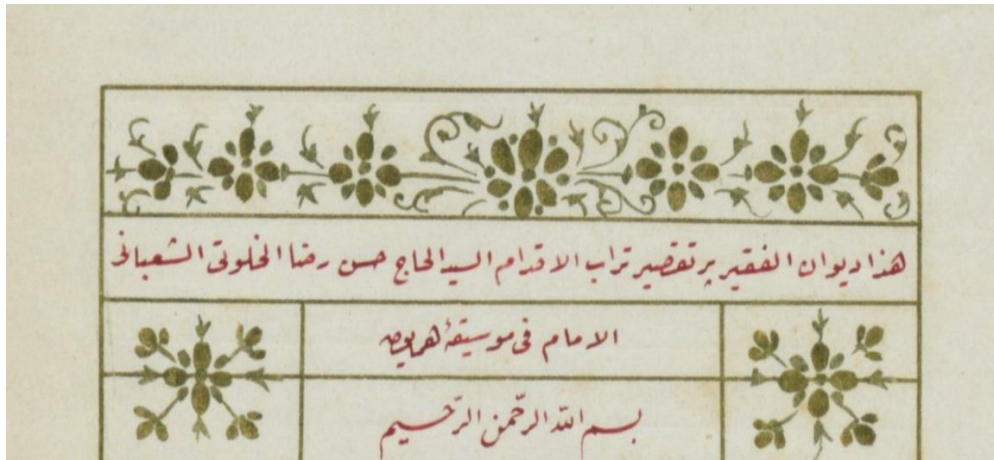 هذا ديوان الفقير پر تقصير تراب الاقدام السيد الحاج حسن رضا الخلوتى الشعبانى
الامام فى موسيقهٔ همايون
بسم الله الرّحمن الرّحيم